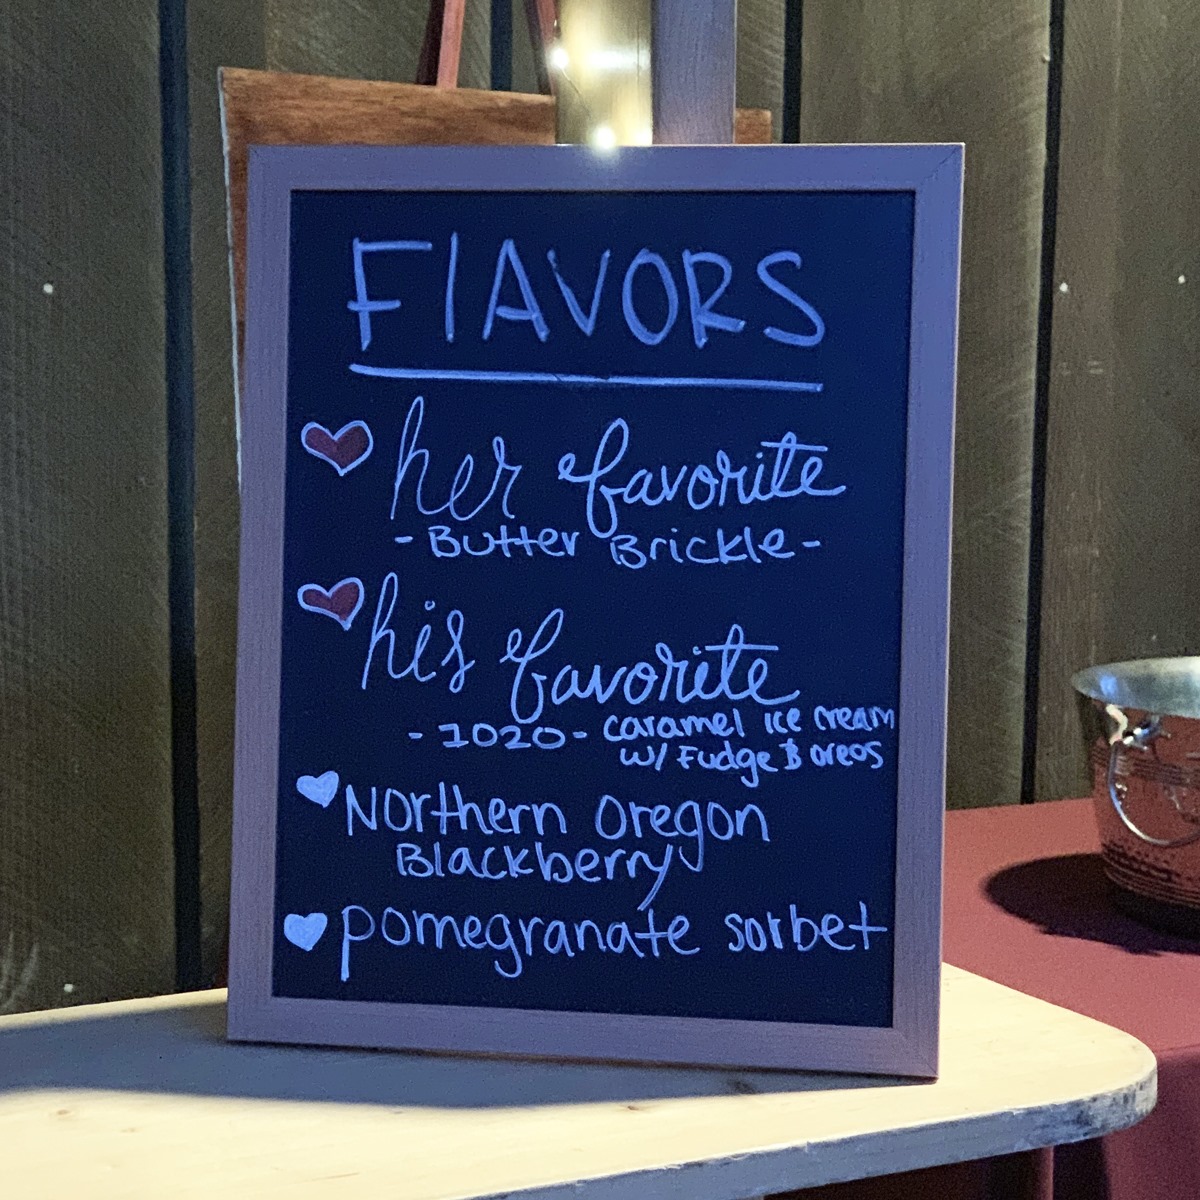 FlAVORS
her favorite
- Butter Brickle -
his favorite
- 1020 - caramel ice cream
w/ Fudge & oreos
Northern Oregon
Blackberry
pomegranate sorbet